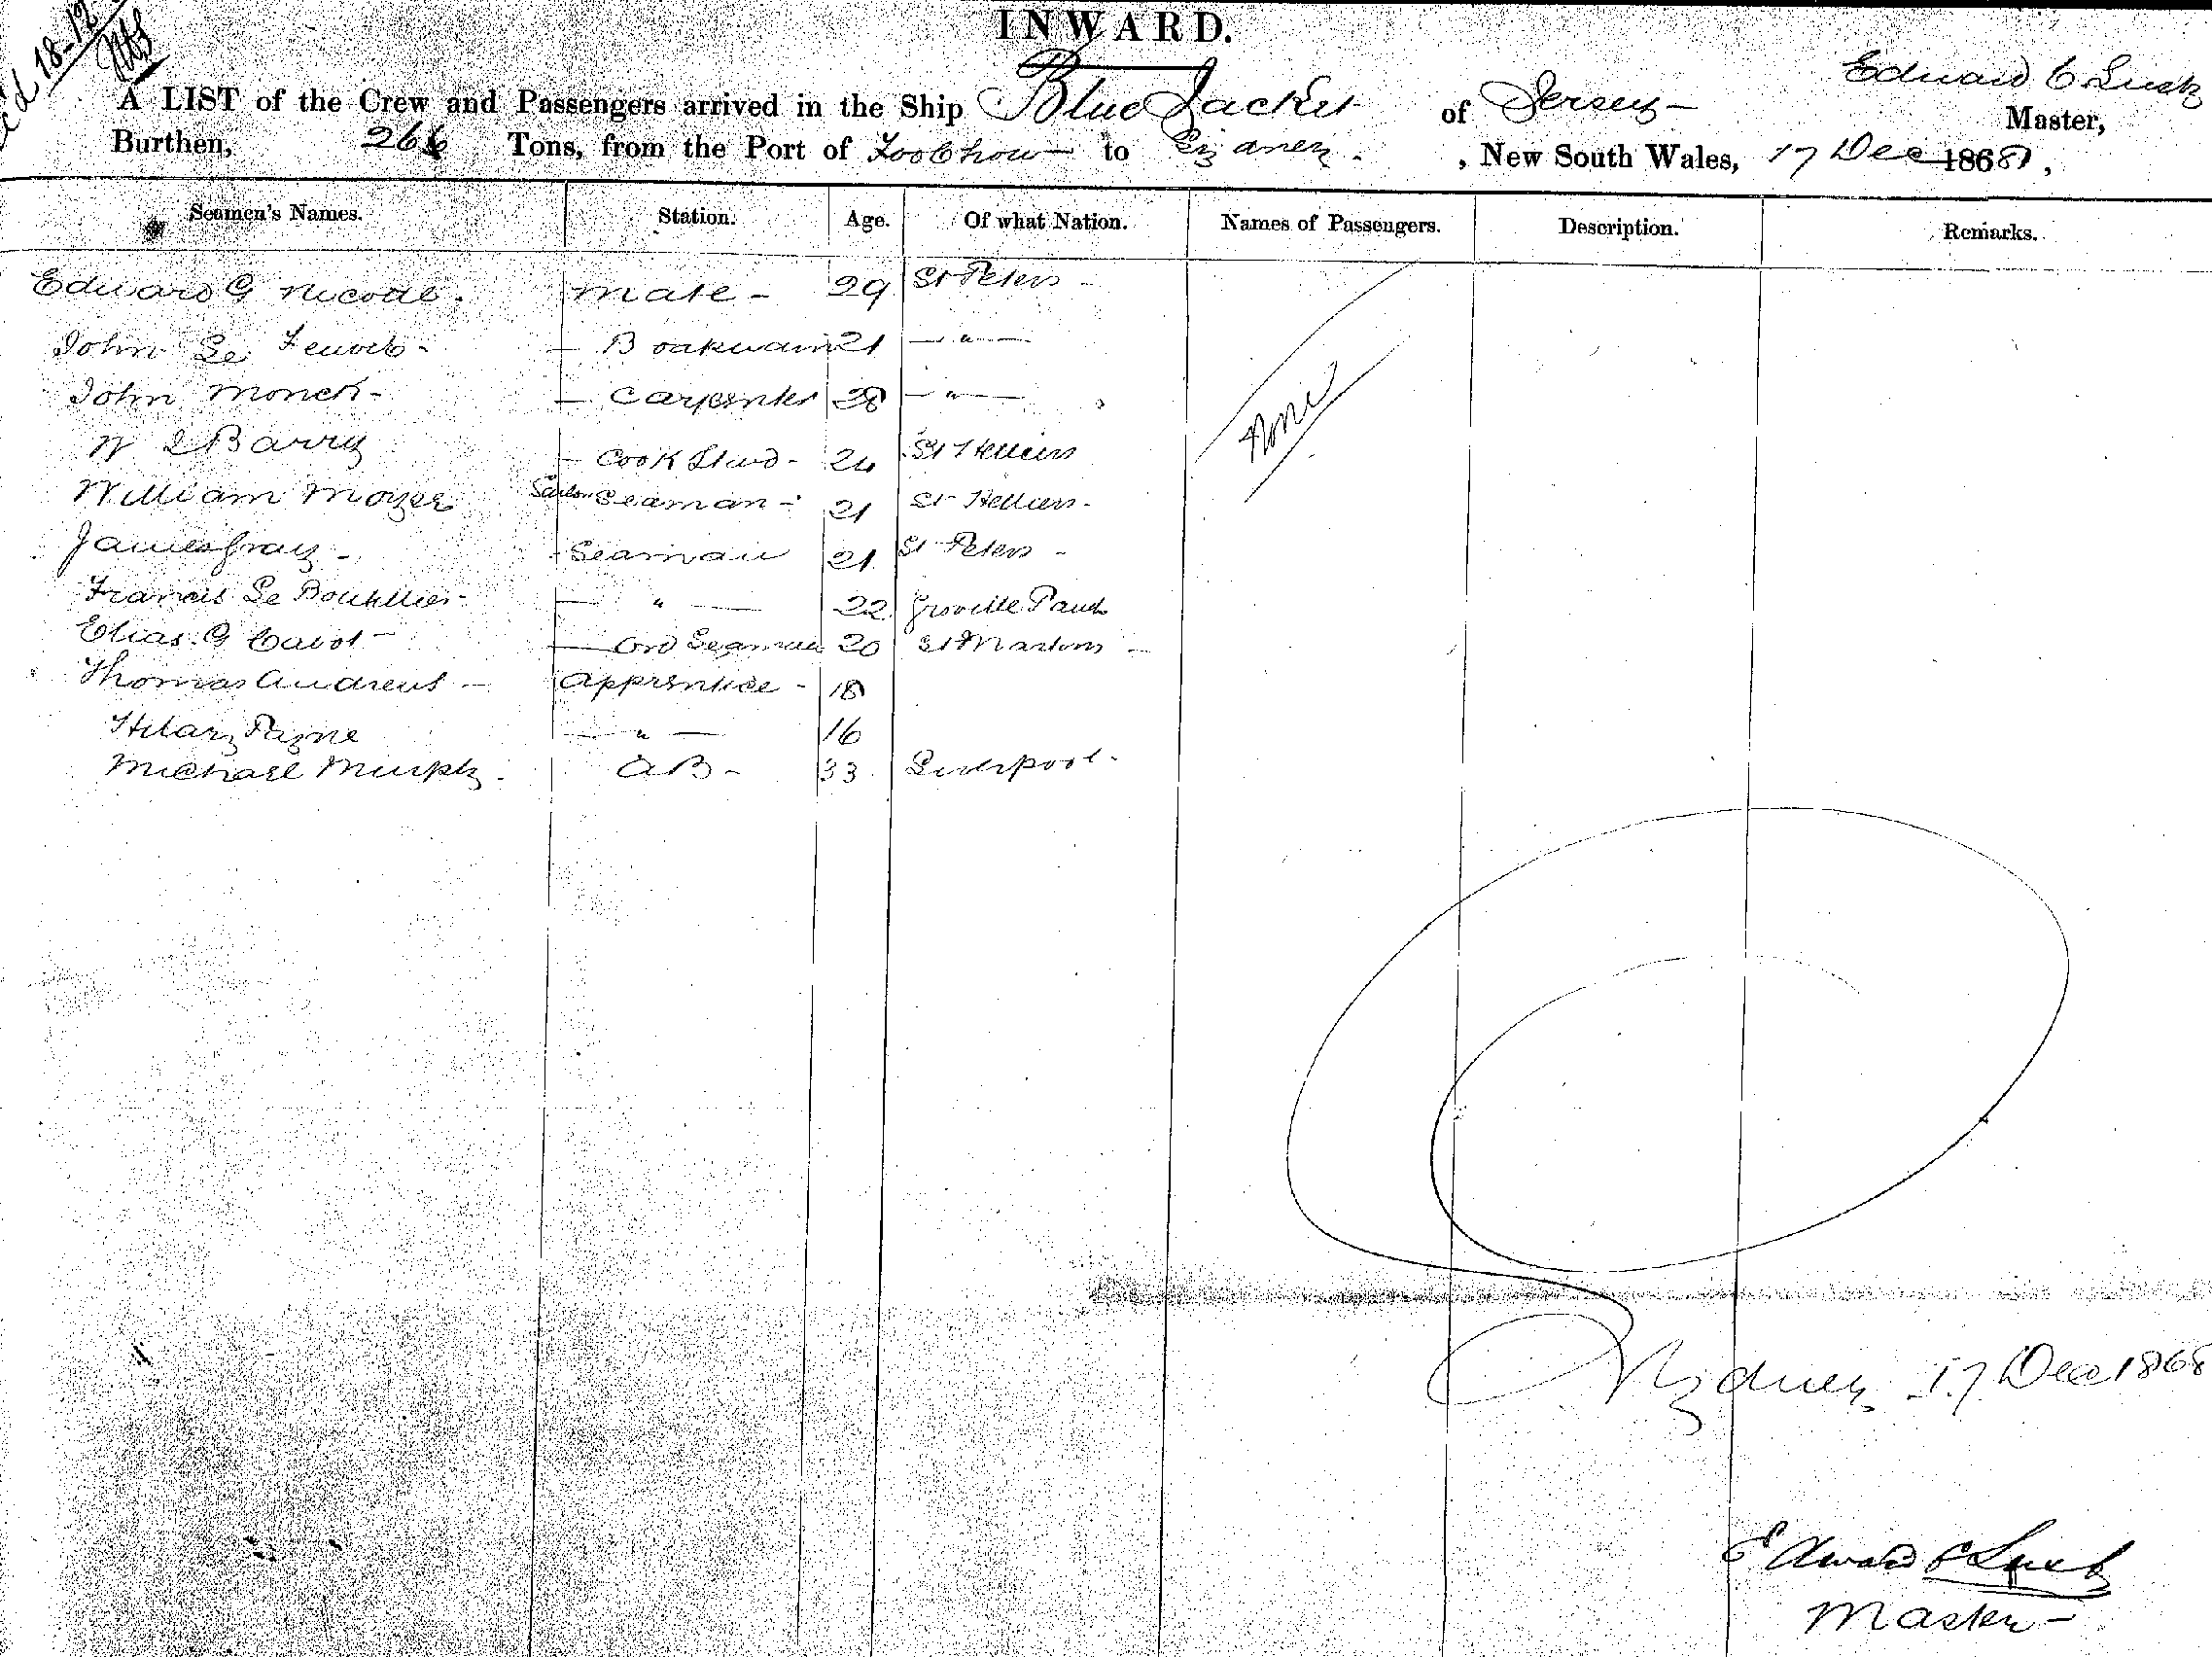 18-12
INWARD.
Edward C
A LIST of the Crew and Passengers arrived in the Ship Blue Jacket of Jersey - Master,
Burthen, 266 Tons, from the Port of Foo Chow - to , New South Wales, 17 Dec 1868,
Seamen's Names. Station. Age. Of what Nation. Names of Passengers. Description. Remarks.
Edward G Nicolle - Mate - 29 St Peters -
John Le Feuvre - - Boatswain 21 — " —
John Monck - - Carpenter 28 — " —
W Barry - Cook Stwd - 24 St Helliers
William Mozer Seaman - 21 St Helliers -
James Gray - - Seaman 21 St Peters -
Francis Le Boutillier - — " — 22 Groville
Elias G Cabot - — Ord Seaman 20 St Martins -
Thomas Andrews - Apprentice - 18
Hilary Payne — " — 16
Michael Murphy - AB - 33 Liverpool -
None
Sydney 17 Dec 1868
Edward C
Master -